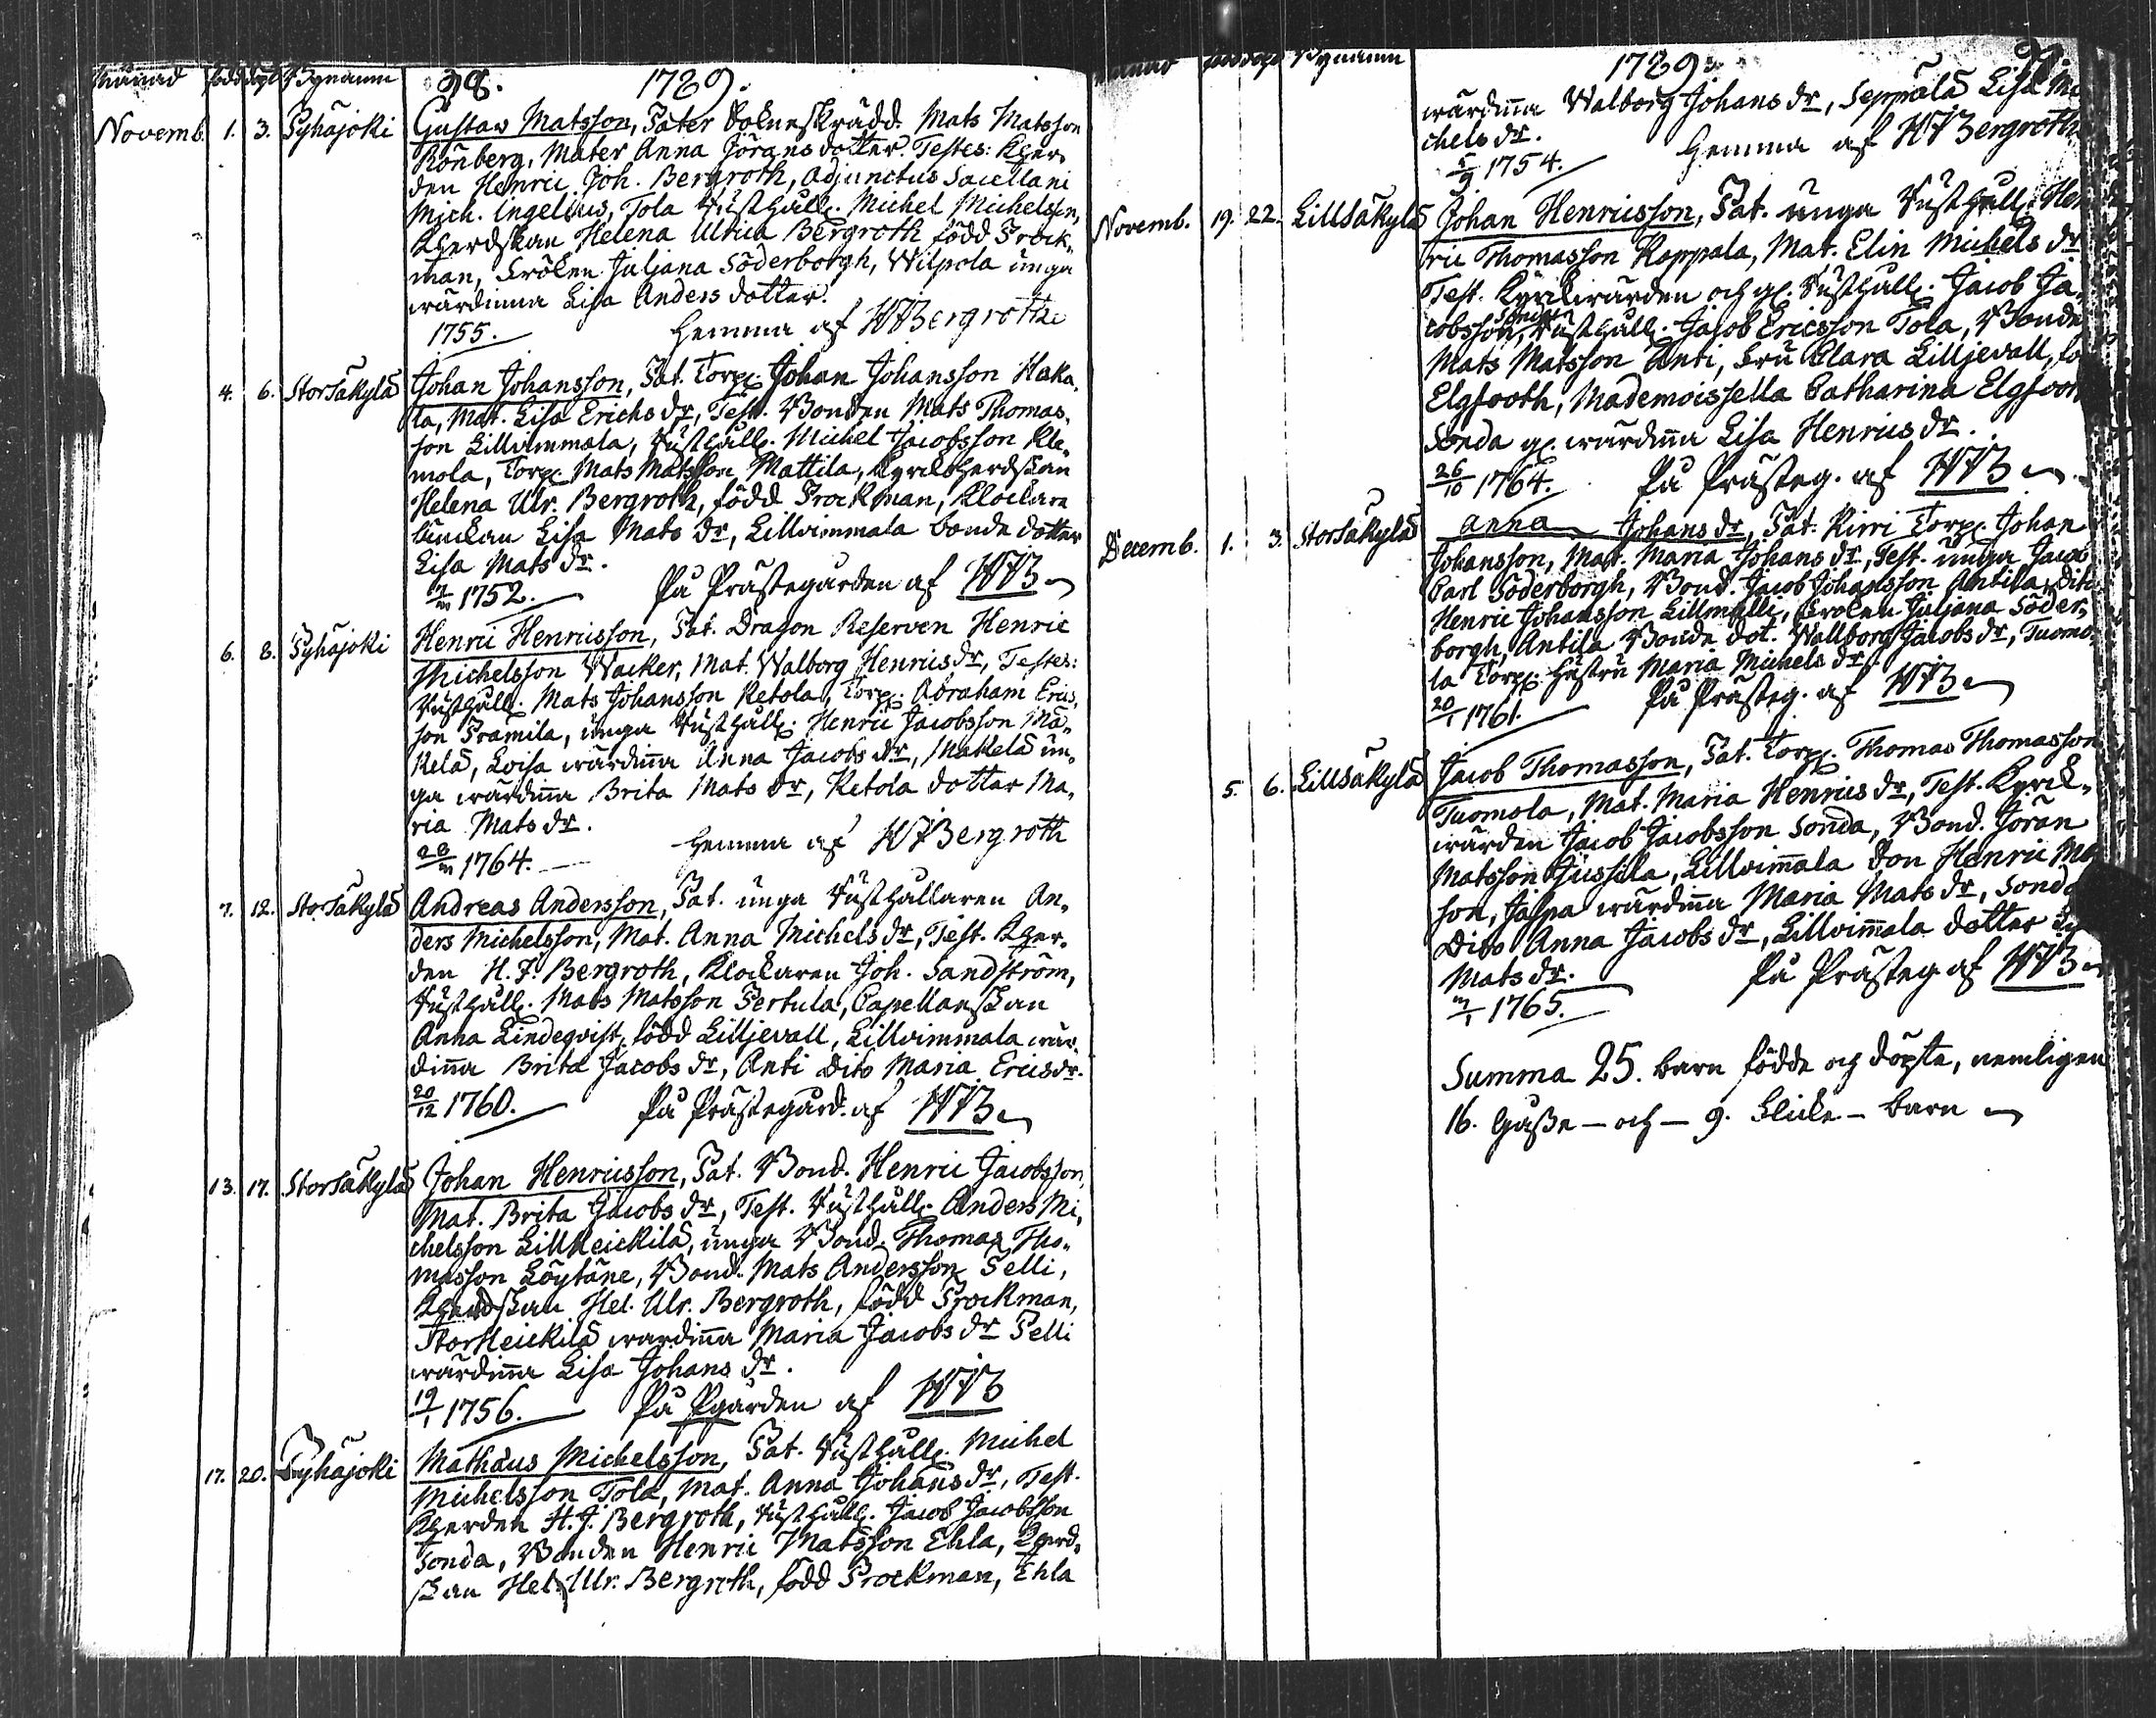 Månad född döpt Bynamn 98. 1789.
Novemb. 1. 3. Pyhäjoki Gustav Matsson, Pater Sokneskrädd. Mats Matsson
Rönberg, Mater Anna Jörans dotter. Testes: Kher-
den Henric Joh. Bergroth, Adjunctus Sacellani
Mich. Ingelius, Tola Rusthåll. Michel Michelsson,
Kherdskan Helena Ulrica Bergroth född Prock-
man, Fröken Juljana Söderborgh, Wilpola unga
wärdinna Lisa Anders dotter.
1755. Hemma af HJBergroth
4. 6. Storsäkylä Johan Johansson, Pat. Torp. Johan Johansson Haka-
la, Mat. Lisa Erichs dr, Test. Bonden Mats Thomas-
son Lillvimmala, Rusthåll. Michel Jacobsson Kle-
mola, Torp. Mats Matsson Mattila, Kyrckherdskan
Helena Ulr. Bergroth, född Prockman, Klockare
Enckan Lisa Mats dr, Lillvimmala bonde dotter
Lisa Mats dr.
1752. På Prästegården af HJB
6. 8. Pyhäjoki Henric Henricsson, Pat. Dragon Reserven Henric
Michelsson Wacker, Mat. Walborg Henrics dr, Testes:
Rusthåll. Mats Johansson Ketola, Torp. Abraham Erics-
son Pramila, unga Rusthåll. Henric Jacobsson Mä-
kelä, Loisa wärdinna Anna Jacobs dr, Mäkelä un-
ga wärdinna Brita Mats dr, Ketola dotter Ma-
ria Mats dr.
1764. Hemma af HJBergroth
7. 12. Storsäkylä Andreas Andersson, Pat. unga Rusthållaren An-
ders Michelsson, Mat. Anna Michels dr, Test. Kher-
den H.J. Bergroth, Klockaren Joh. Sandström,
Rusthåll. Mats Matsson Pertula, Capellanskan
Anna Lindeqvist, född Lilljevall, Lillvimmala wär-
dinna Brita Jacobs dr, Anti Dito Maria Erics dr.
20/12 1760. På Prästegård. af HJB
13. 17. Storsäkylä Johan Henricsson, Pat. Bond. Henric Jacobsson,
Mat. Brita Jacobs dr, Test. Rusthåll. Anders Mi-
chelsson Lillheickilä, unga Bond. Thomas Tho-
masson Löytäne, Bond. Mats Andersson Pelli,
Kherdskan Hel. Ulr. Bergroth, född Prockman,
Storheickilä wärdinna Maria Jacobs dr Pelli
wärdinna Lisa Johans dr.
19/1 1756. På Pgården af HJB
17. 20. Pyhäjoki Mathæus Michelsson, Pat. Rusthåll. Michel
Michelsson Tola, Mat. Anna Johans dr, Test.
Kherden H.J. Bergroth, Rusthåll. Jacob Jacobsson
Sonda, Bonden Henric Matsson Ehla, Kherd-
skan Hel. Ulr. Bergroth, född Prockman, Ehla
Månad född döpt Bynamn 1789.
wärdinna Walborg Johans dr, Seppälä Lisa Mi
chels dr.
5/9 1754. Hemma af HJBergroth
Novemb. 19. 22. Lillsäkylä Johan Henricsson, Pat. unga Rusthåll. Hen
ric Thomasson Kappala, Mat. Elin Michels dr
Test. Kyrckwärden och gl. Rusthåll. Jacob Ja-
cobsson Sonda, Rusthåll. Jacob Ericsson Tola, Bonde
Mats Matsson Anti, Fru Clara Lilljevall,
Elgfooth, Mademoissella Catharina Elgfoot
Sonda gl. wärdinna Lisa Henrics dr.
26/10 1764. På Prästeg. af HJB
Decemb. 1. 3. Storsäkylä Anna Johans dr, Pat. Kirri Torp. Johan
Johansson, Mat. Maria Johans dr, Test. unga Jacob
Carl Söderborgh, Bond. Jacob Johansson Antila, Dito
Henric Johansson Lillmälli, Fröken Juljana Söder-
borgh, Antila Bonde dot. Wallborg Jacobs dr, Tuomo-
la Torp. Hustru Maria Michels dr.
20/1 1761. På Prästeg. af HJB
5. 6. Lillsäkylä Jacob Thomasson, Pat. Torp. Thomas Thomasson
Tuomola, Mat. Maria Henrics dr, Test. Kyrck-
wärden Jacob Jacobsson Sonda, Bond. Jöran
Matsson Jussila, Lillvimmala Son Henric Ma
son, Jaspa wärdinna Maria Mats dr, Sonda
Dito Anna Jacobs dr, Lillvimmala dotter
Mats dr.
1765. På Prästeg. af HJB
Summa 25. barn födde och döpte, nemligen
16. Gosse - och - 9. Flicke - barn